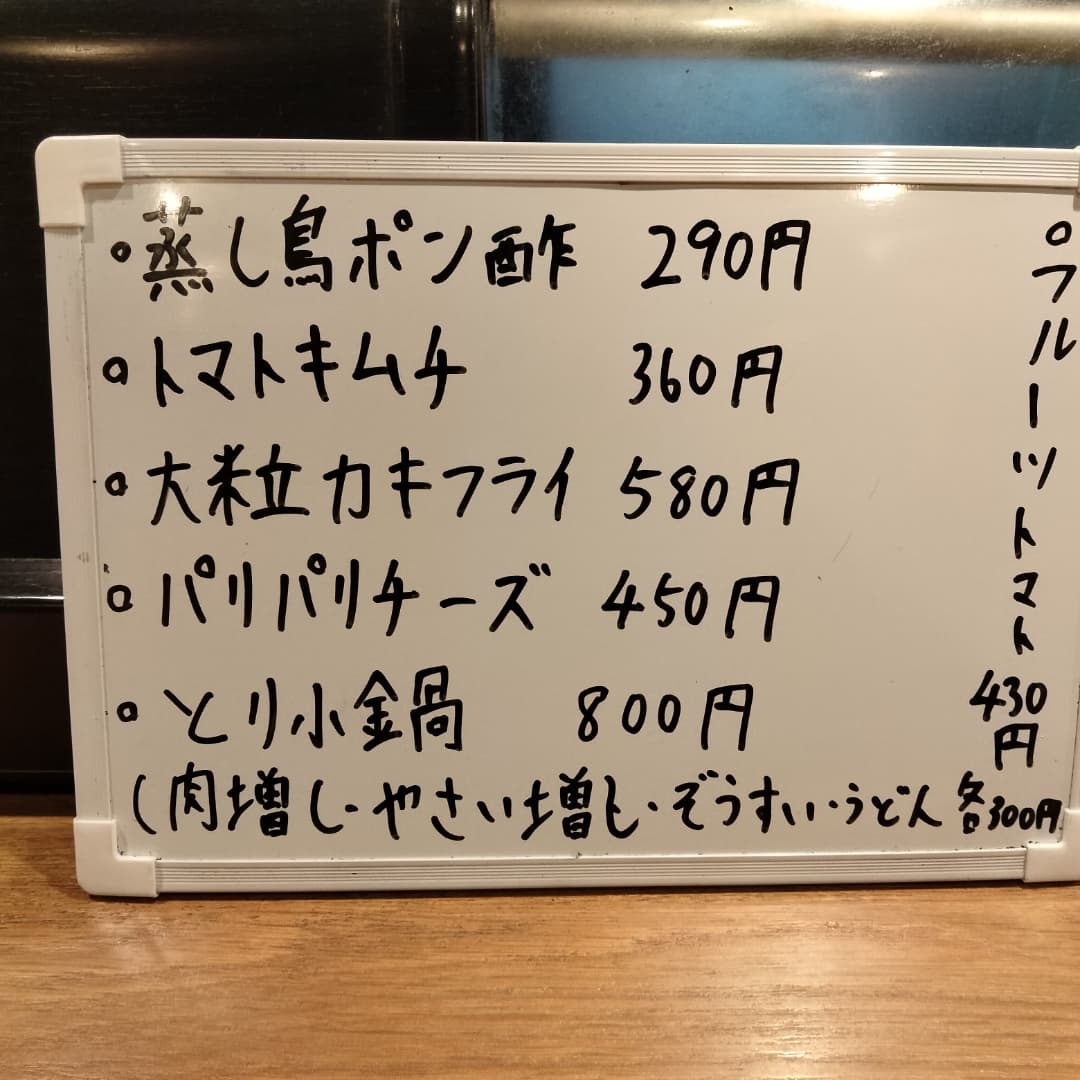 。蒸し鳥ポン酢 290円
。トマトキムチ 360円
。大粒カキフライ 580円
。パリパリチーズ 450円
。とり小鍋 800円
(肉増し・やさい増し・ぞうすい・うどん各300円
。フルーツトマト
430
円